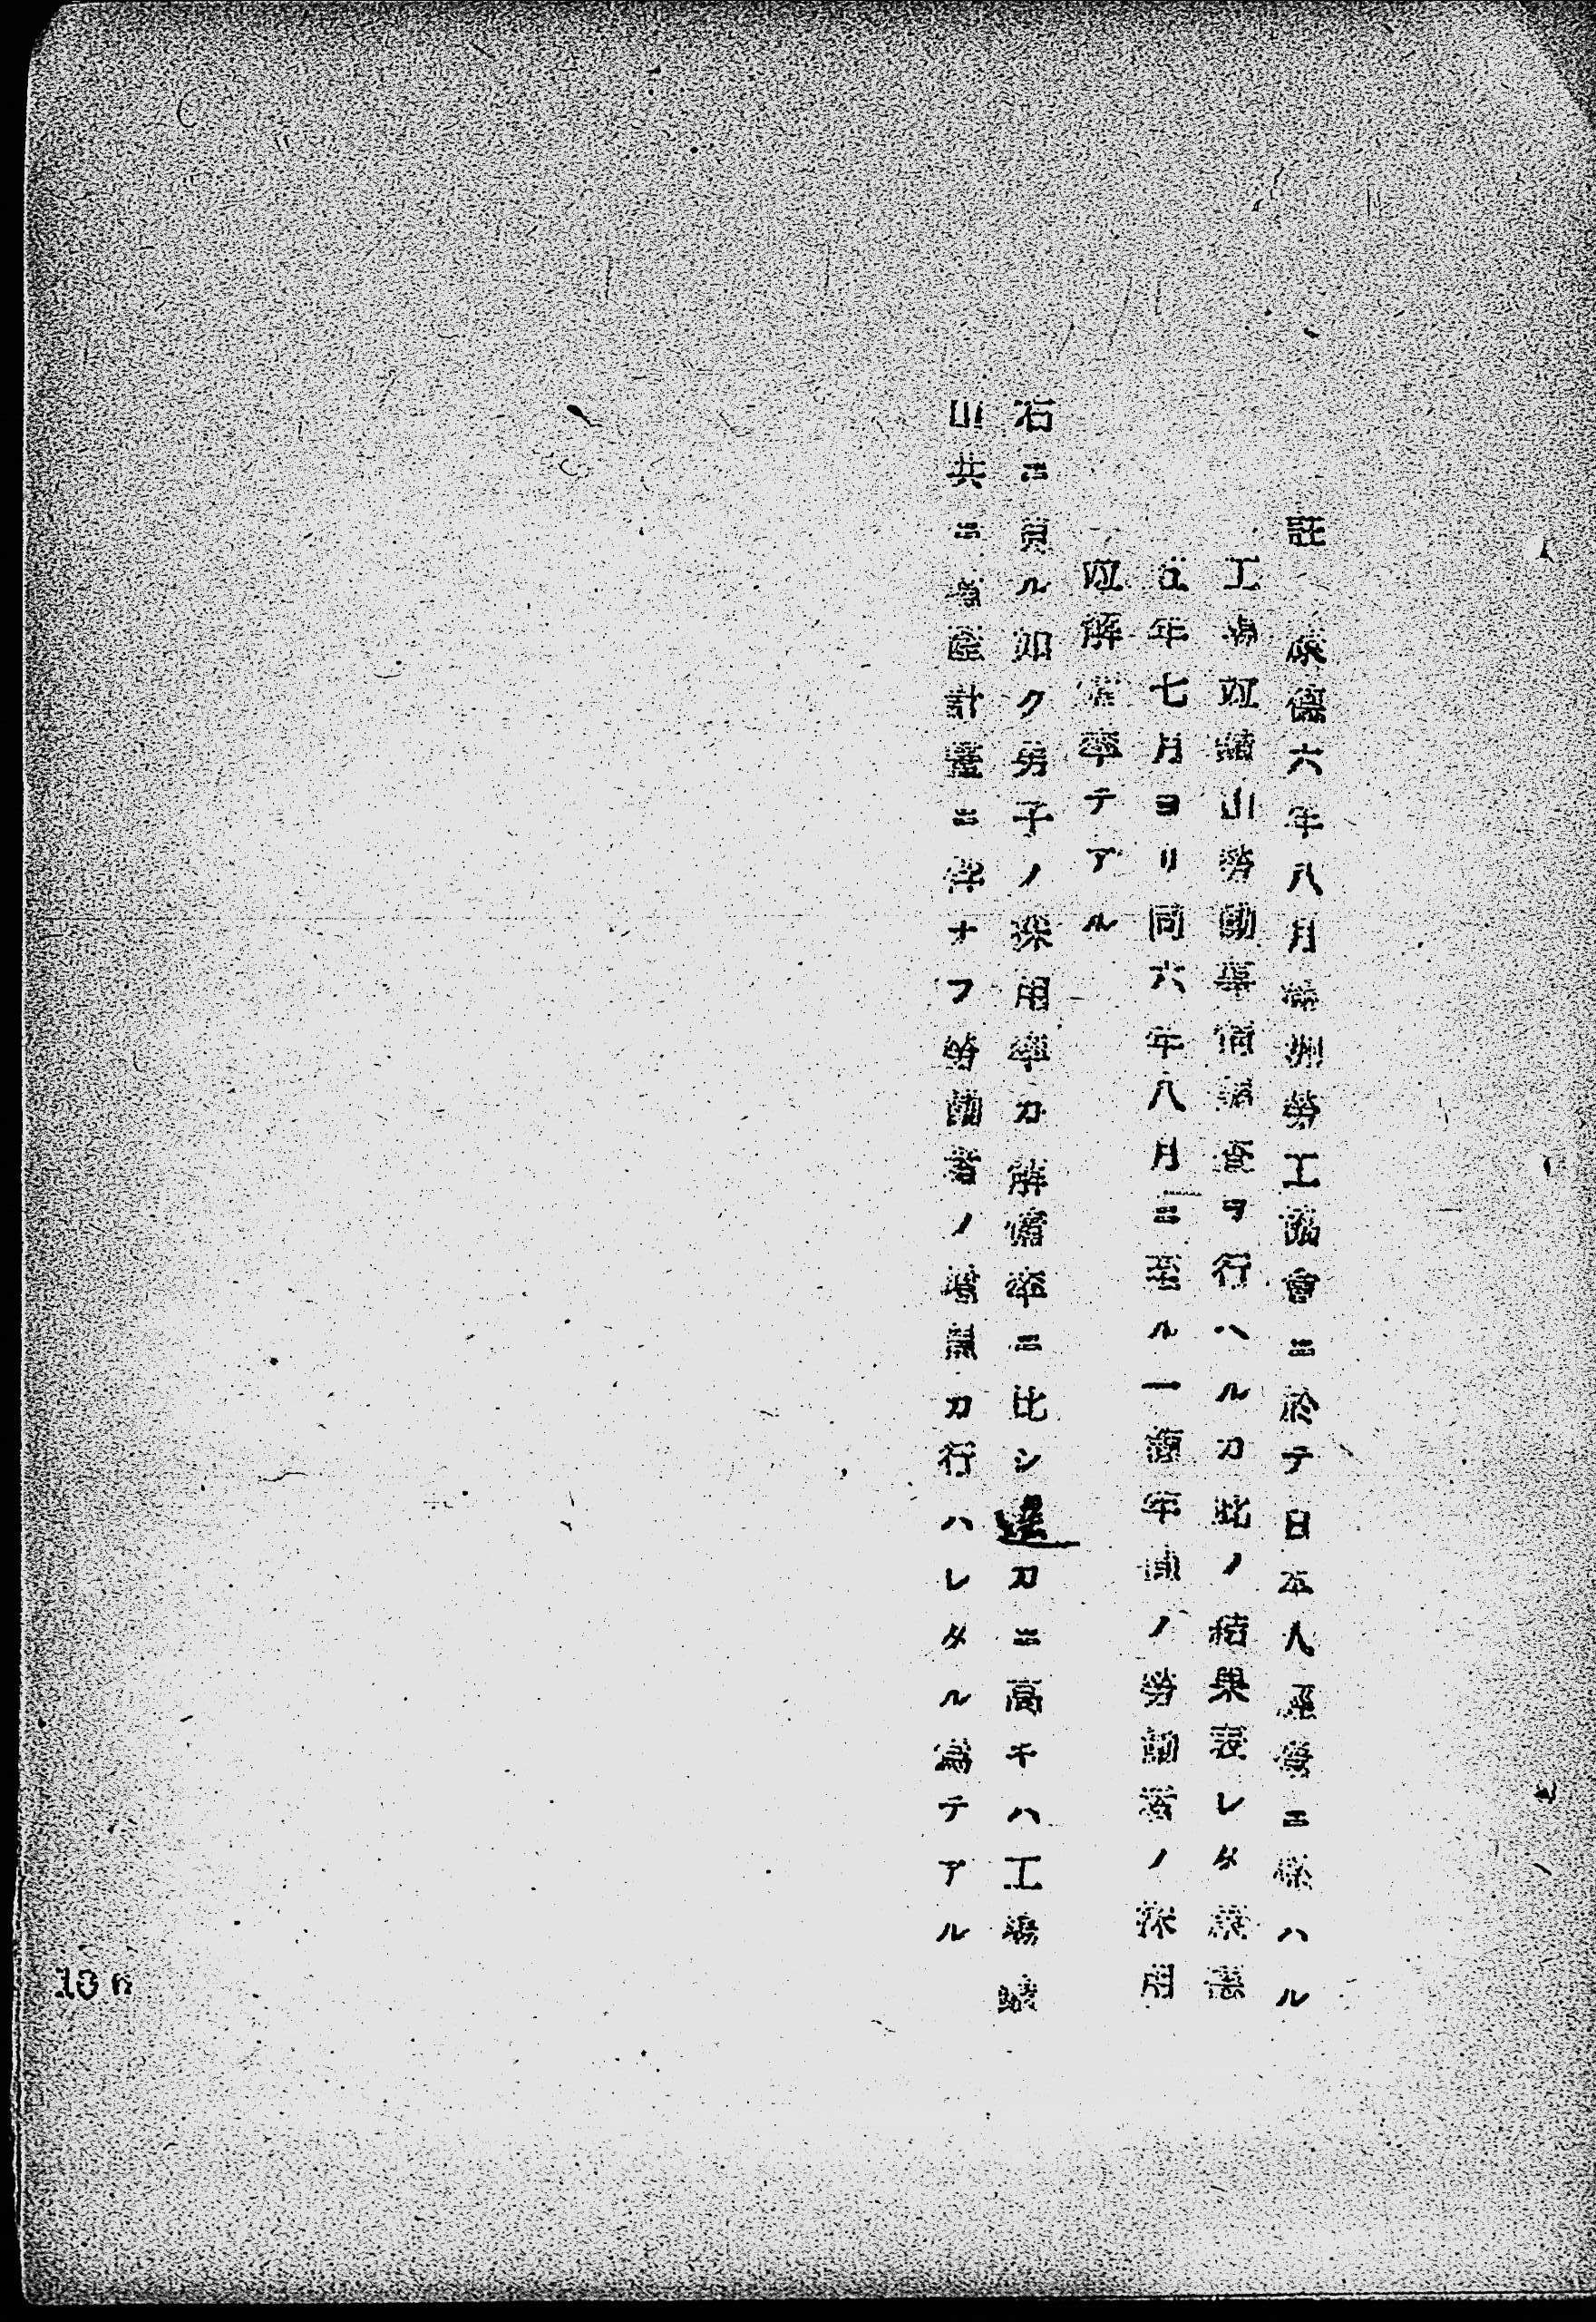 註 康德六年八月滿洲勞工協會ニ於テ日本人經營ニ係ハル
工場竝鑛山勞働事情調査ヲ行ヘルカ此ノ結果表レタ康德
五年七月ヨリ同六年八月ニ至ル一ヶ年間ノ勞働者ノ採用
竝解雇率テアル
右ニ見ル如ク男子ノ採用率カ解傭率ニ比シ遙カニ高キハ工場鑛
山共ニ增產計畫ニ伴ナフ勞働者ノ增員カ行ハレタル爲テアル
10